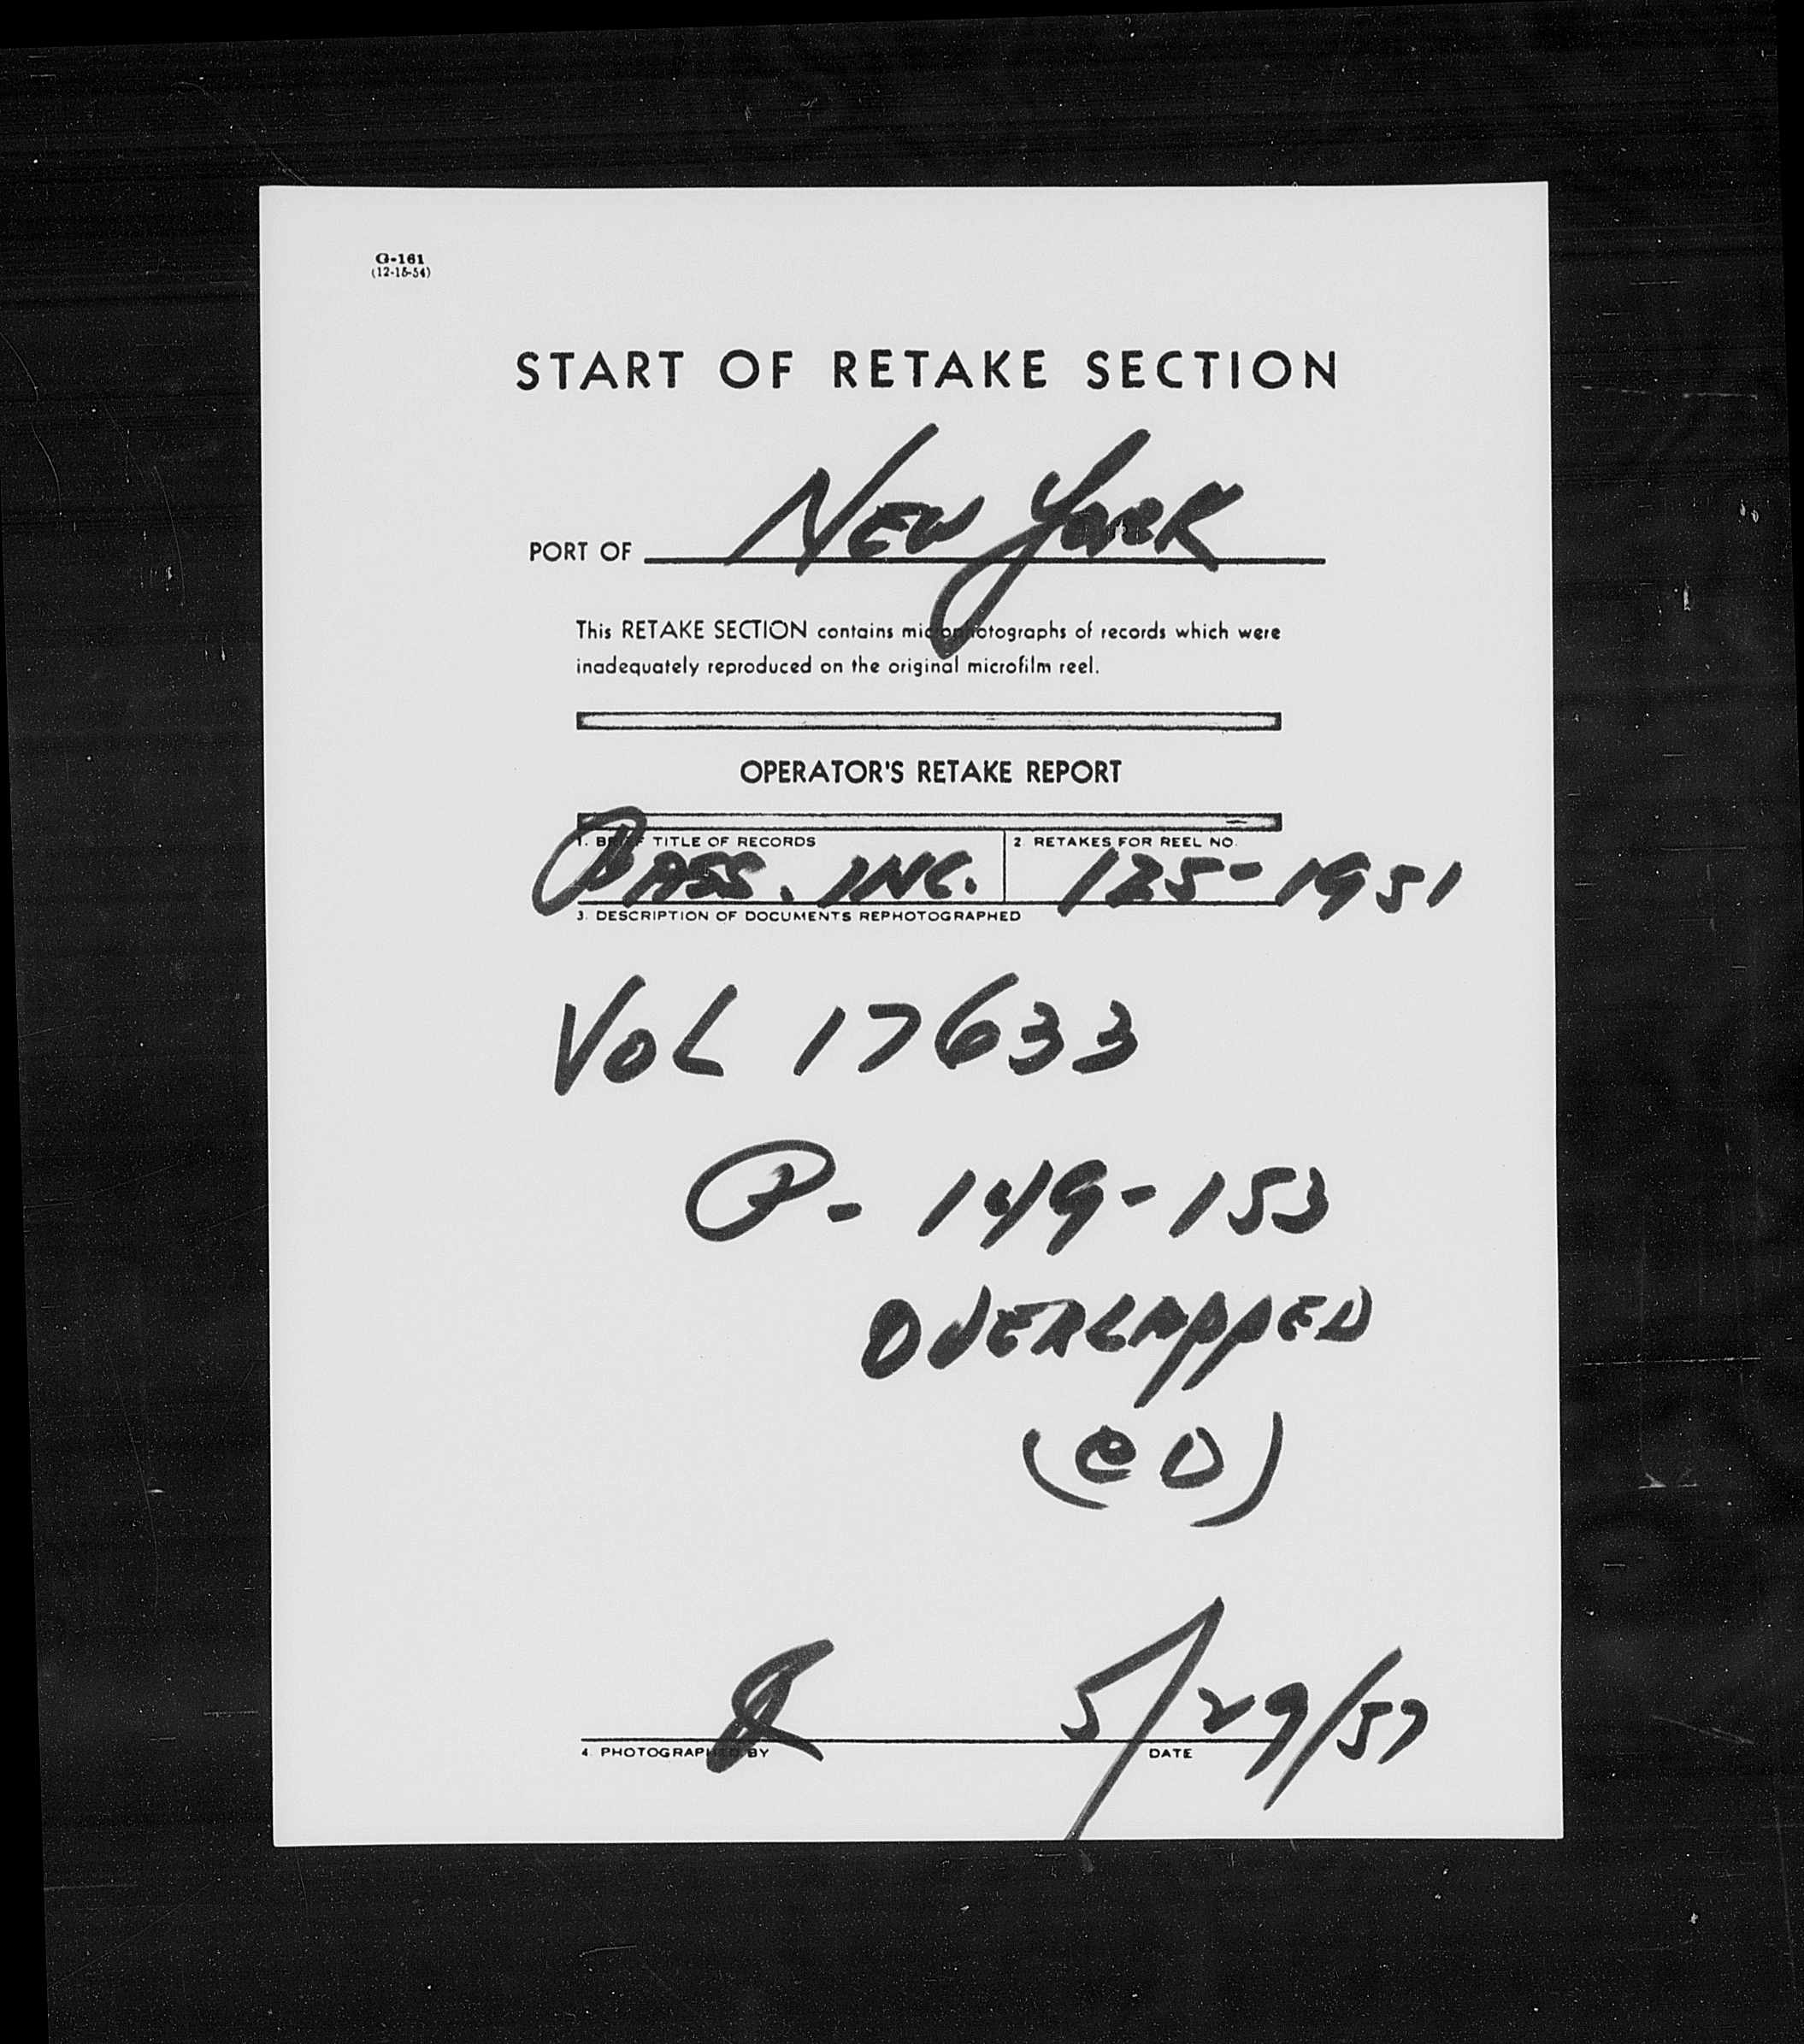 G-161
(12-15-54)
START OF RETAKE SECTION
PORT OF New York
This RETAKE SECTION contains microphotographs of records which were
inadequately reproduced on the original microfilm reel.
OPERATOR'S RETAKE REPORT
1. BRIEF TITLE OF RECORDS 2. RETAKES FOR REEL NO.
PASS. INC. 125-1951
3. DESCRIPTION OF DOCUMENTS REPHOTOGRAPHED
VOL 17633
P- 149-153
OVERLAPPED
(eD)
5/29/57
4. PHOTOGRAPHED BY DATE